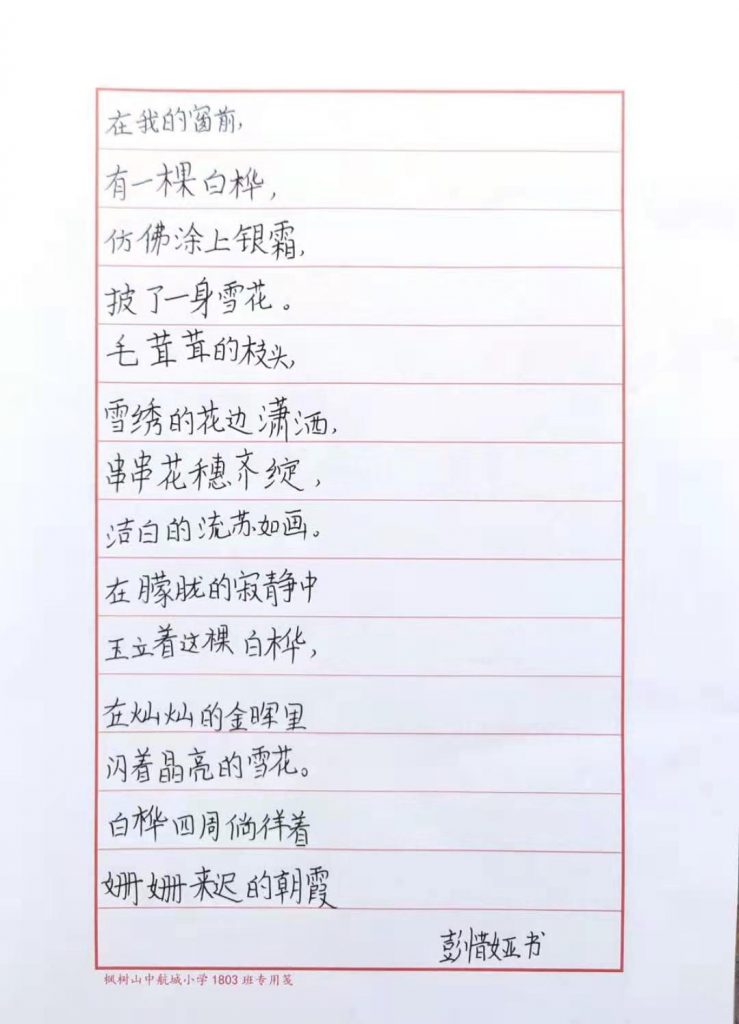 在我的窗前,
有一棵白桦,
仿佛涂上银霜,
披了一身雪花。
毛茸茸的枝头,
雪绣的花边潇洒,
串串花穗齐绽,
洁白的流苏如画。
在朦胧的寂静中
玉立着这棵白桦,
在灿灿的金晖里
闪着晶亮的雪花。
白桦四周徜徉着
姗姗来迟的朝霞
彭惜娅书
枫树山中航城小学1803班专用笺